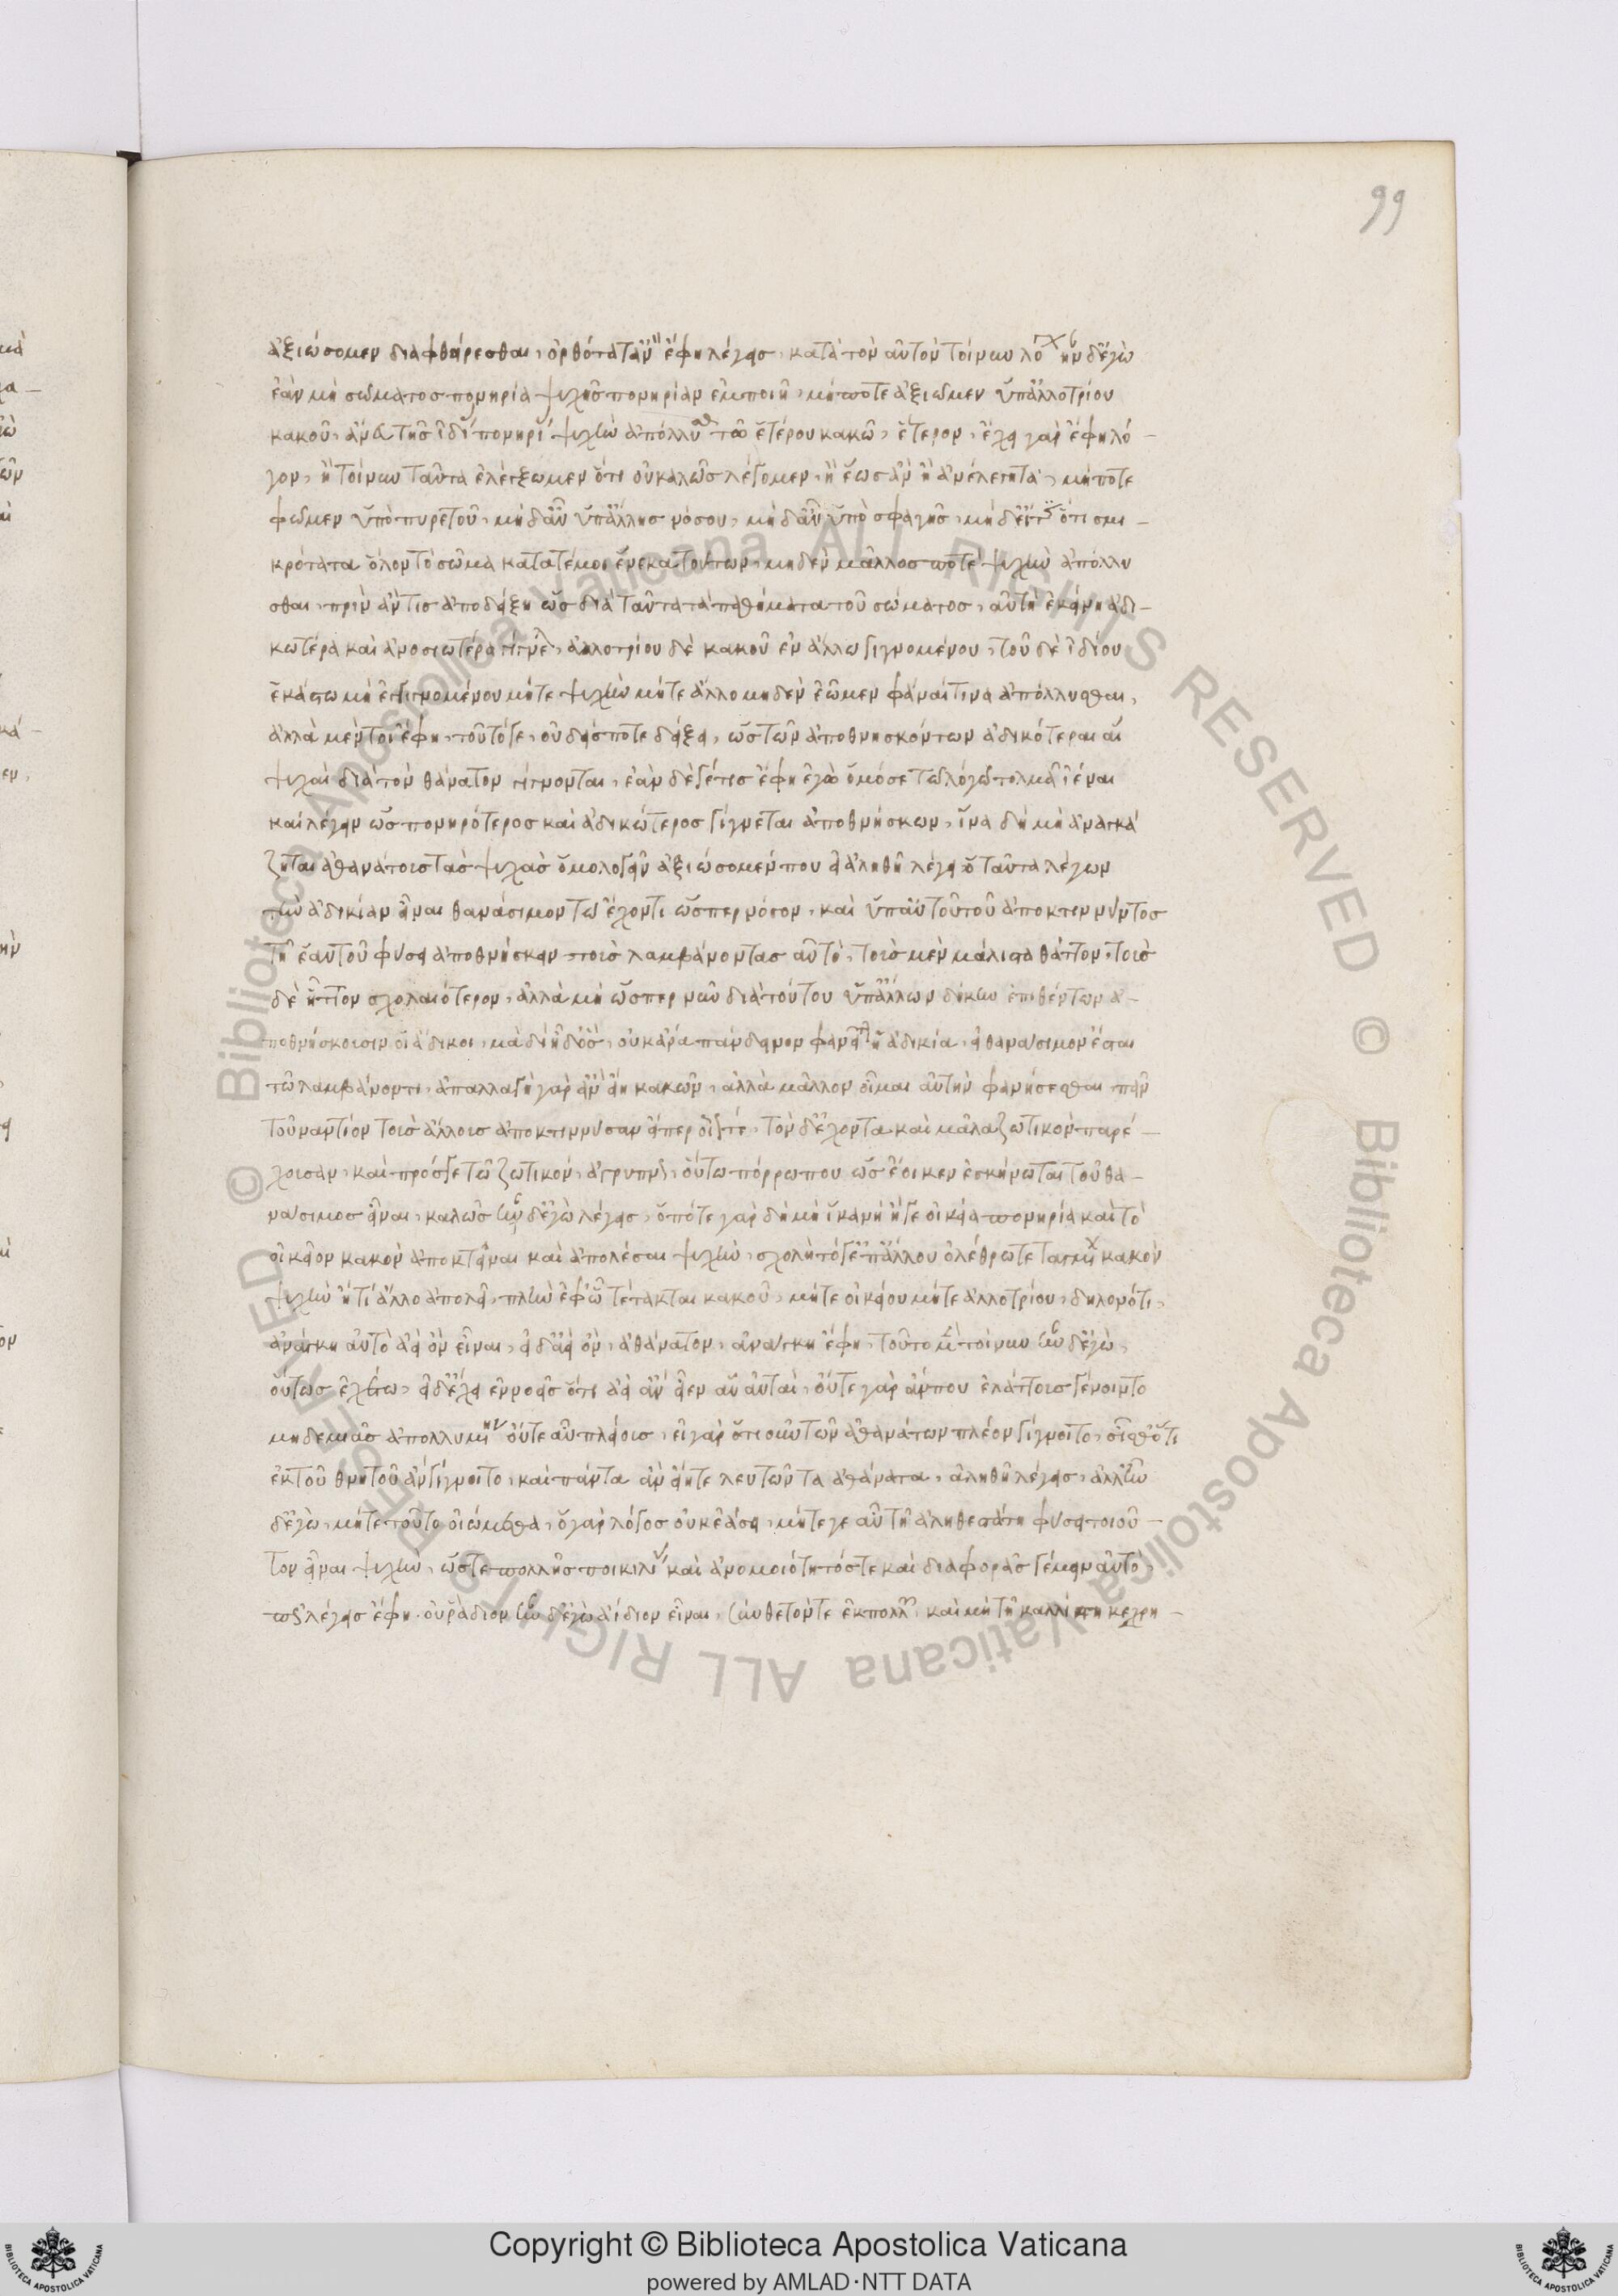 99
ἀξιώσομεν διαφθαρεσθαι, ὀρθότατ' ἂν ἔφη λέγεις, κατὰ τὸν αὐτὸν τοίνυν λό ἦν δ' ἐγὼ
ἐὰν μὴ σώματος πονηρία ψυχῆς πονηρίαν ἐμποιῆ, μήποτε ἀξιῶμεν ὑπ' ἀλλοτρίου
κακοῦ, ἄνευ τῆς ἰδί πονηρί ψυχὴν ἀπόλλυσθ τῶ ἑτέρου κακῶ, ἕτερον, ἔχει γὰρ ἔφη λό–
γον, ἢ τοίνυν ταῦτα ἐλέγξωμεν ὅτι οὐ καλῶς λέγομεν, ἢ ἕως ἂν ἦ ἀνέλεγκτα, μήποτε
φῶμεν ὑπὸ πυρετοῦ, μηδ' αὖ ὑπ' ἄλλης νόσου, μηδ' αὖ ὑπὸ σφαγῆς, μηδ' εἴ τις ὅτι σμι–
κρότατα ὅλον τὸ σῶμα κατατέμοι ἕνεκα τούτων, μηδὲν μᾶλλόν ποτε ψυχὴν ἀπόλλυ
σθαι, πρὶν ἄν τις ἀποδείξη ὡς διὰ ταῦτα τὰ παθήματα τοῦ σώματος, αὐτὴ ἐκείνη ἀδι–
κωτέρα καὶ ἀνοσιωτέρα γίγνε, ἀλλοτρίου δὲ κακοῦ ἐν ἄλλω γιγνομένου, τοῦ δὲ ἰδίου
ἑκάστω μὴ ἐγγιγνομένου μήτε ψυχὴν μήτε ἄλλο μηδὲν ἐῶμεν φάναι τινα ἀπόλλυσθαι,
ἀλλὰ μέντοι ἔφη, τοῦτό γε, οὐδείς ποτε δείξει, ὡς τῶν ἀποθνησκόντων ἀδικότεραι αἱ
ψυχαὶ διὰ τὸν θάνατον γίγνονται, ἐὰν δέ γέ τις ἔφη ἐγὼ ὁμόσε τῶ λόγω τολμᾶ ἰέναι
καὶ λέγειν ὡς πονηρότερος καὶ ἀδικώτερος γίγνεται ἀποθνήσκων, ἵνα δὴ μὴ ἀναγκά
ζηται ἀθανάτους τὰς ψυχὰς ὁμολογεῖν ἀξιώσομέν που εἰ ἀληθῆ λέγει ὁ ταῦτα λέγων
τὴν ἀδικίαν εἶναι θανάσιμον τῶ ἔχοντι ὥσπερ νόσον, καὶ ὑπ' αὐτοῦ τοῦ ἀποκτιννύντος
τῆ ἑαυτοῦ φύσει ἀποθνήσκειν τοὺς λαμβάνοντας αὐτό, τοὺς μὲν μάλιστα θᾶττον, τοὺς
δὲ ἧττον σχολαιότερον, ἀλλὰ μὴ ὥσπερ νῦν διὰ τούτου ὑπ' ἄλλων δίκην ἐπιθέντων ἀ–
ποθνήσκουσιν οἱ ἄδικοι, μὰ δί' ἦ δ' ὃς, οὐκ ἄρα πάνδεινον φανεῖτ ἡ ἀδικία, εἰ θανάσιμον ἔσται
τῶ λαμβάνοντι, ἀπαλλαγὴ γὰρ ἂν εἴη κακῶν, ἀλλὰ μᾶλλον οἶμαι αὐτὴν φανήσεσθαι πᾶν
τοὐναντίον τοὺς ἄλλους ἀποκτιννύσαν εἴπερ οἷόν τε, τὸν δ' ἔχοντα καὶ μάλα ζωτικὸν παρέ–
χουσαν, καὶ πρός γε τῶ ζωτικὸν, ἄγρυπν, οὕτω πόρρω που ὡς ἔοικεν ἐσκήνωται τοῦ θα–
νάσιμος εἶναι, καλῶς ἦν δ' ἐγὼ λέγεις, ὁπότε γὰρ δὴ μὴ ἱκανὴ ἥ γε οἰκεία πονηρία καὶ τὸ
οἰκεῖον κακὸν ἀποκτεῖναι καὶ ἀπολέσαι ψυχὴν, σχολῆ τό γε ἐπ' ἄλλου ὀλέθρω τεταγμ κακὸν
ψυχὴν ἤ τι ἄλλο ἀπολεῖ, πλὴν ἐφ' ὧ τέτακται κακοῦ, μήτε οἰκείου μήτε ἀλλοτρίου, δηλονότι,
ἀνάγκη αὐτὸ ἀεὶ ὂν εἶναι, εἰ δ' ἀεὶ ὂν, ἀθάνατον, ἀνάγκη ἔφη, τοῦτο μὲ τοίνυν ἦν δ' ἐγὼ,
οὕτως ἐχέτω, εἰ δ' ἔχει ἐννοεῖς ὅτι ἀεὶ ἂν εἶεν αἱ αὐταὶ, οὔτε γὰρ ἄν που ἐλάττους γένοιντο
μηδεμιᾶς ἀπολλυμ οὔτε αὖ πλείους, εἰ γὰρ ὁτιοῦν τῶν ἀθανάτων πλέον γίγνοιτο, οἶσθ' ὅτι
ἐκ τοῦ θνητοῦ ἂν γίγνοιτο, καὶ πάντα ἂν εἴη τελευτῶντα ἀθάνατα, ἀληθῆ λέγεις, ἀλλ' ἦν
δ' ἐγὼ, μήτε τοῦτο οἰώμεθα, ὁ γὰρ λόγος οὐκ ἐάσει, μήτε γε αὖ τῆ ἀληθεστάτη φύσει τοιοῦ–
τον εἶναι ψυχὴν, ὥστε πολλῆς ποικιλί καὶ ἀνομοιότητός τε καὶ διαφορᾶς γέμειν αὐτὸ,
πῶς λέγεις ἔφη. οὐ ῥάδιον ἦν δ' ἐγὼ ἀΐδιον εἶναι, σύνθετόν τε ἐκ πολλ, καὶ μὴ τῆ καλλίστη κεχρη–
Copyright © Biblioteca Apostolica Vaticana
powered by AMLAD·NTT DATA